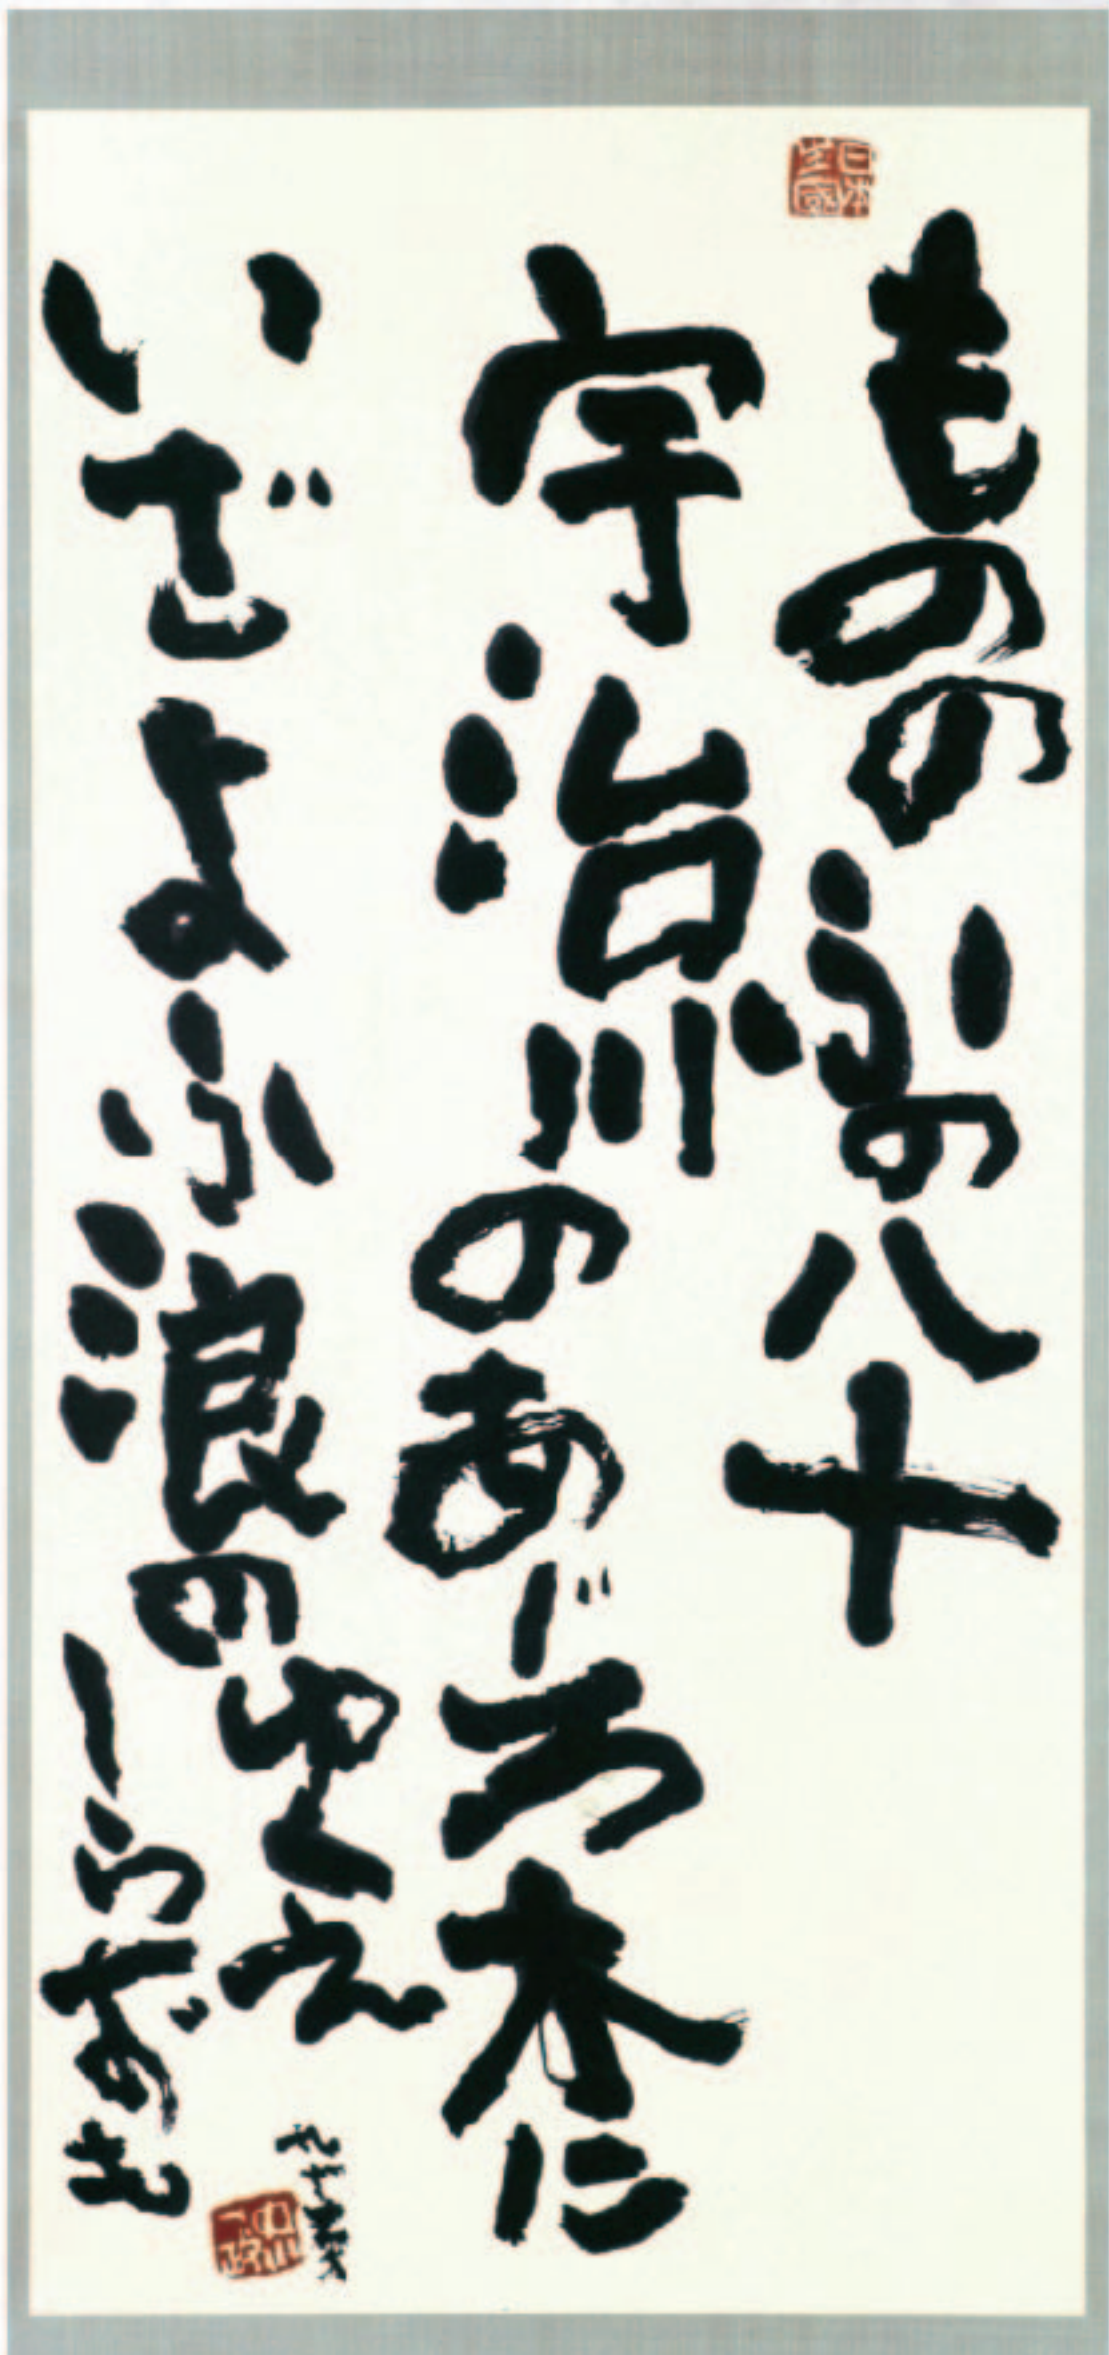 もののふの八十
宇治川のあじろ木に
いざよふ浪のゆくえ
しらずも
中川一政